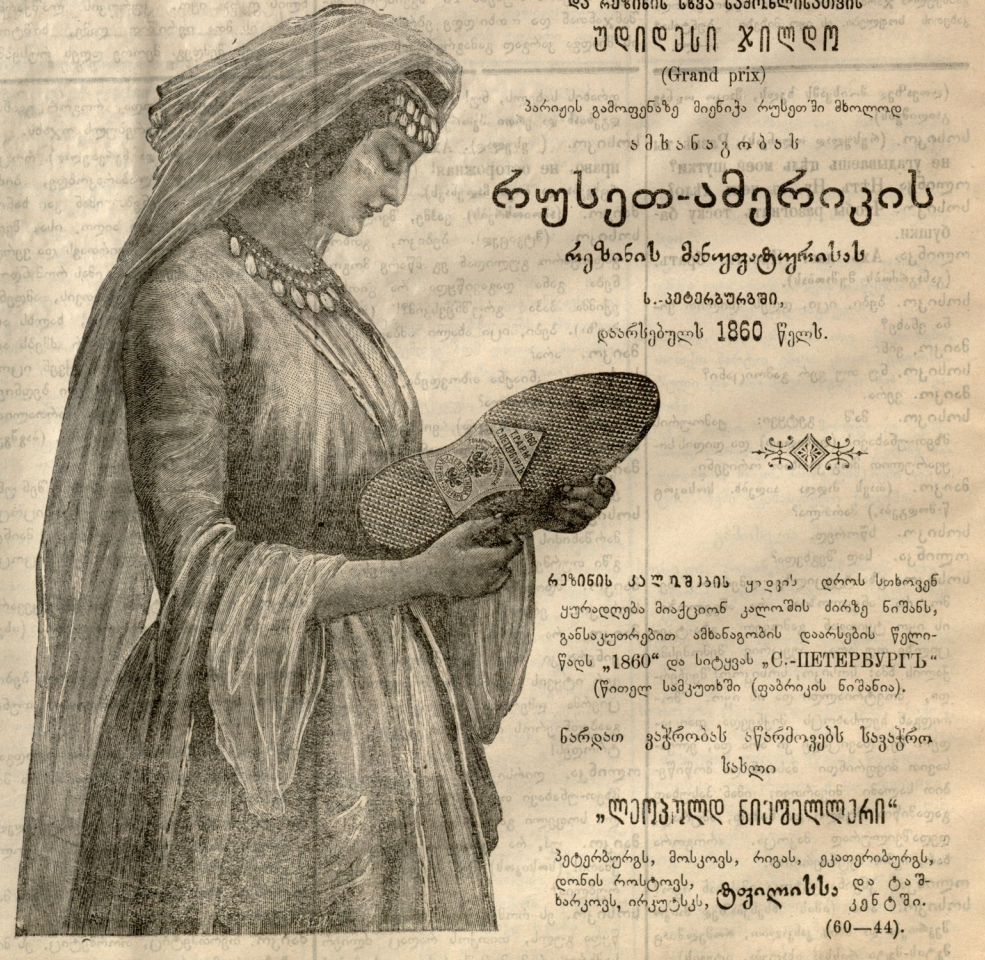 და რეზინის სხვა სამოხლისათვის
უდიდესი ჯილდო
(Grand prix)
პარიჟის გამოფენაზე მიენიჭა რუსეთში მხოლოდ
ამხანაგობას
რუსეთ-ამერიკის
რეზინის მანუფატურისას
ს.-პეტერბურგში,
დაარსებულს 1860 წელს.
1860
С.ПЕТЕРБУРГЪ
რეზინის კალოშების ყიდვის დროს სთხოვენ
ყურადღება მიაქციონ კალოშის ძირზე ნიშანს,
განსაკუთრებით ამხანაგობის დაარსების წელი-
წადს „1860“ და სიტყვას „С.-ПЕТЕРБУРГЪ“
(წითელ სამკუთხში (ფაბრიკის ნიშანია).
ნარდათ ვაჭრობას აწარმოებს სავაჭრო
სახლი
„ლეოპულდ ნიეშელლერი“
პეტერბურგს, მოსკოვს, რიგას, ეკათერიბურგს,
დონის როსტოვს,
ხარკოვს, ირკუტსკს, ტფილისსა და ტაშ-
კენტში.
(60—44).